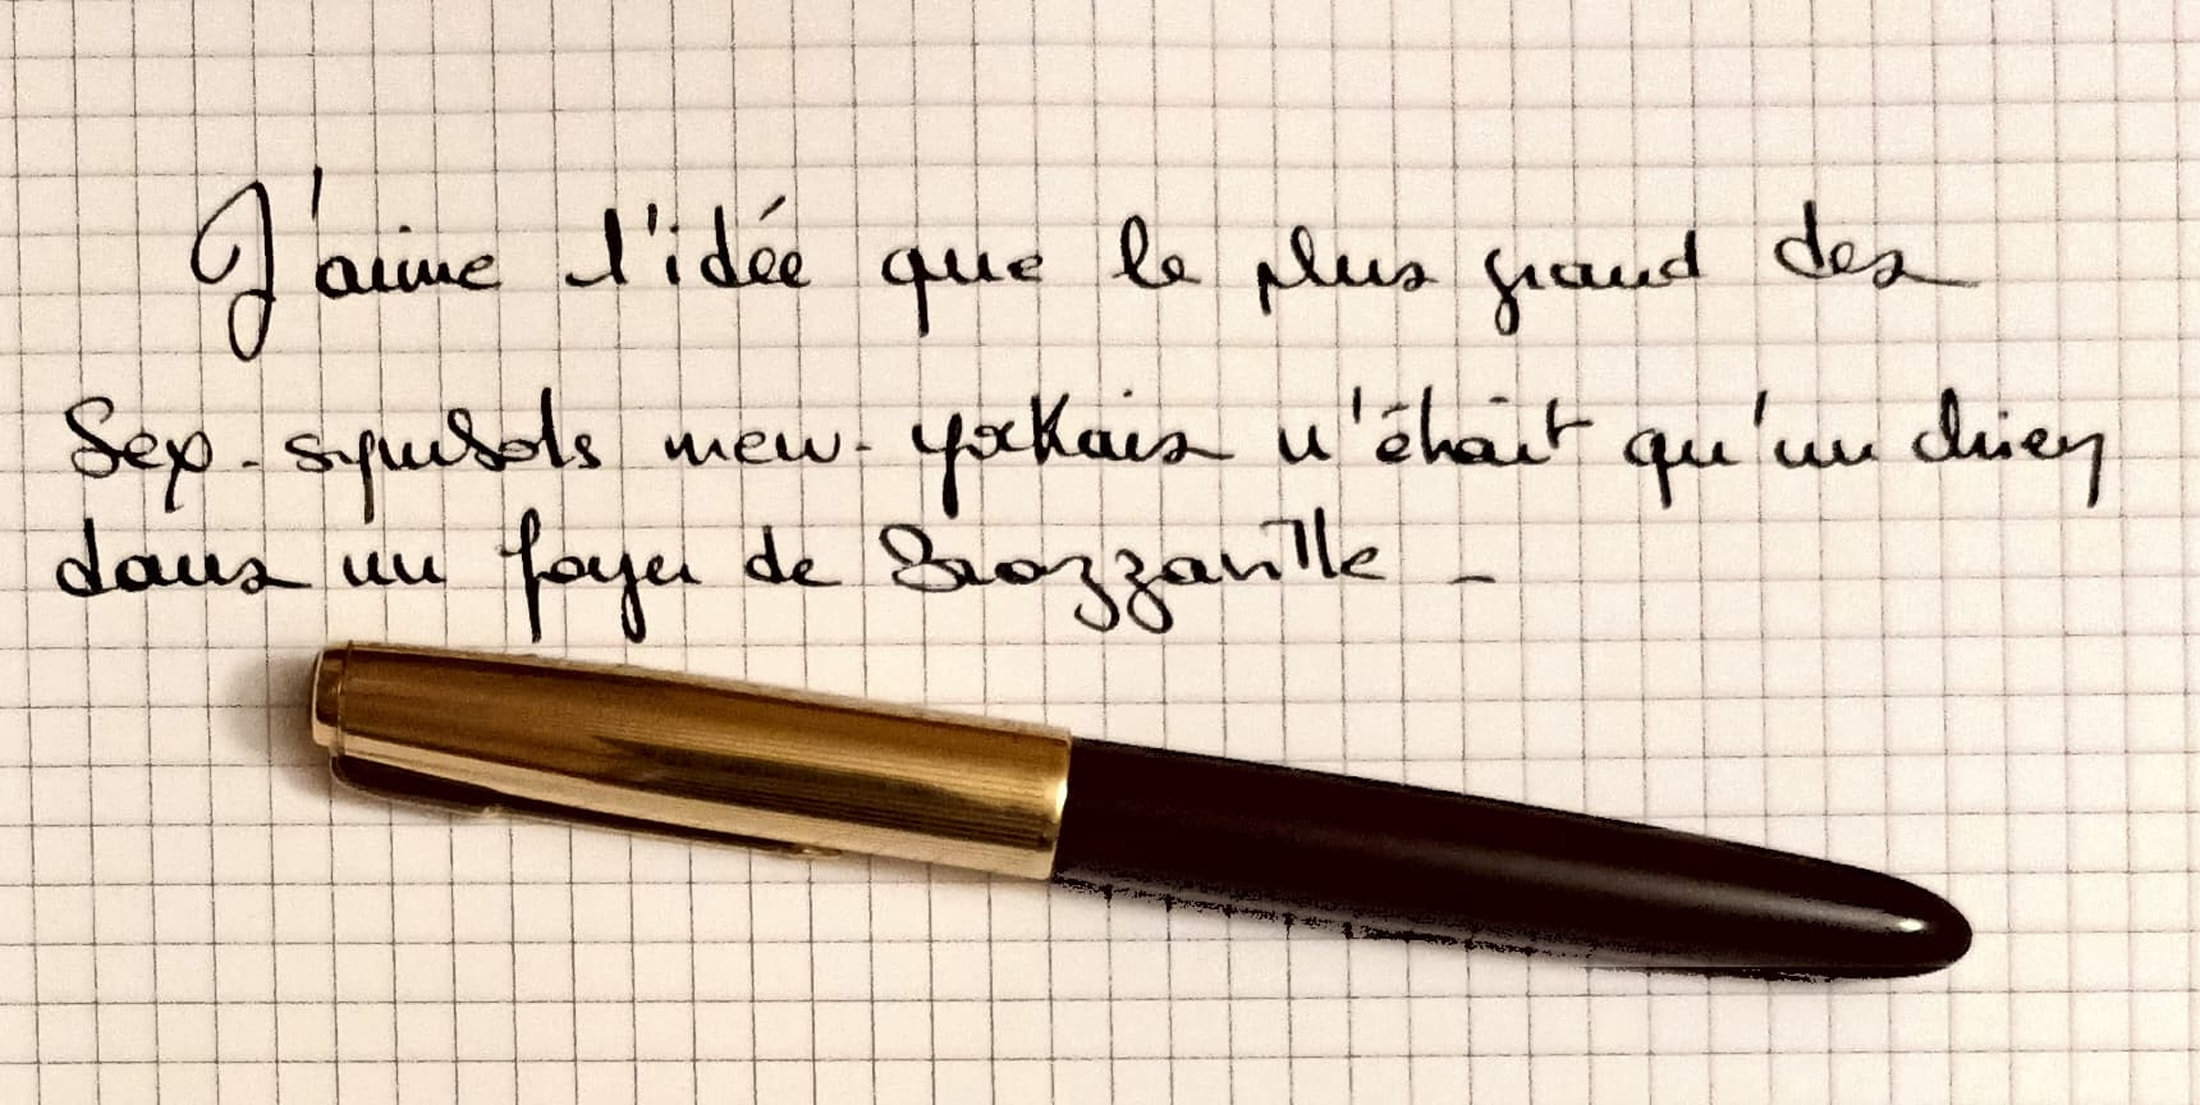 J'aime l'idée que le plus grand des
Sex-symbols new-yorkais n'était qu'un chien
dans un foyer de Brazzaville -